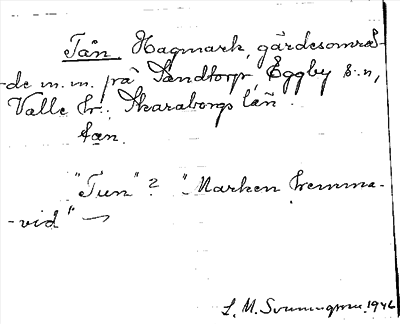 Tån Hagmark, gärdesområ-
-de m.m. på Sandtorp, Eggby s:n,
Valle hr. Skaraborgs län.
tan.
"Tun"? "Marken hemma-
-vid"
S. M. 1946